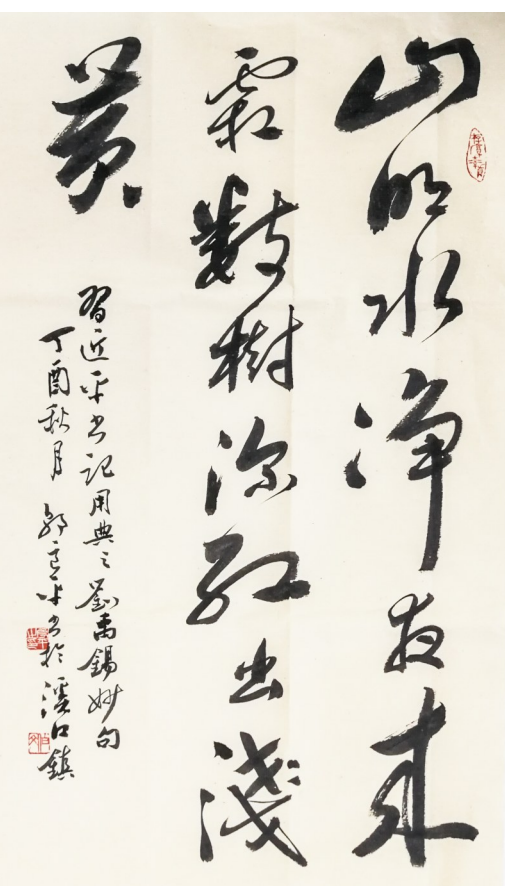 山明水净夜来
霜数树深红出浅
黄
习近平书记用典之刘禹锡妙句
丁酉秋月 郭良平书于溪口镇